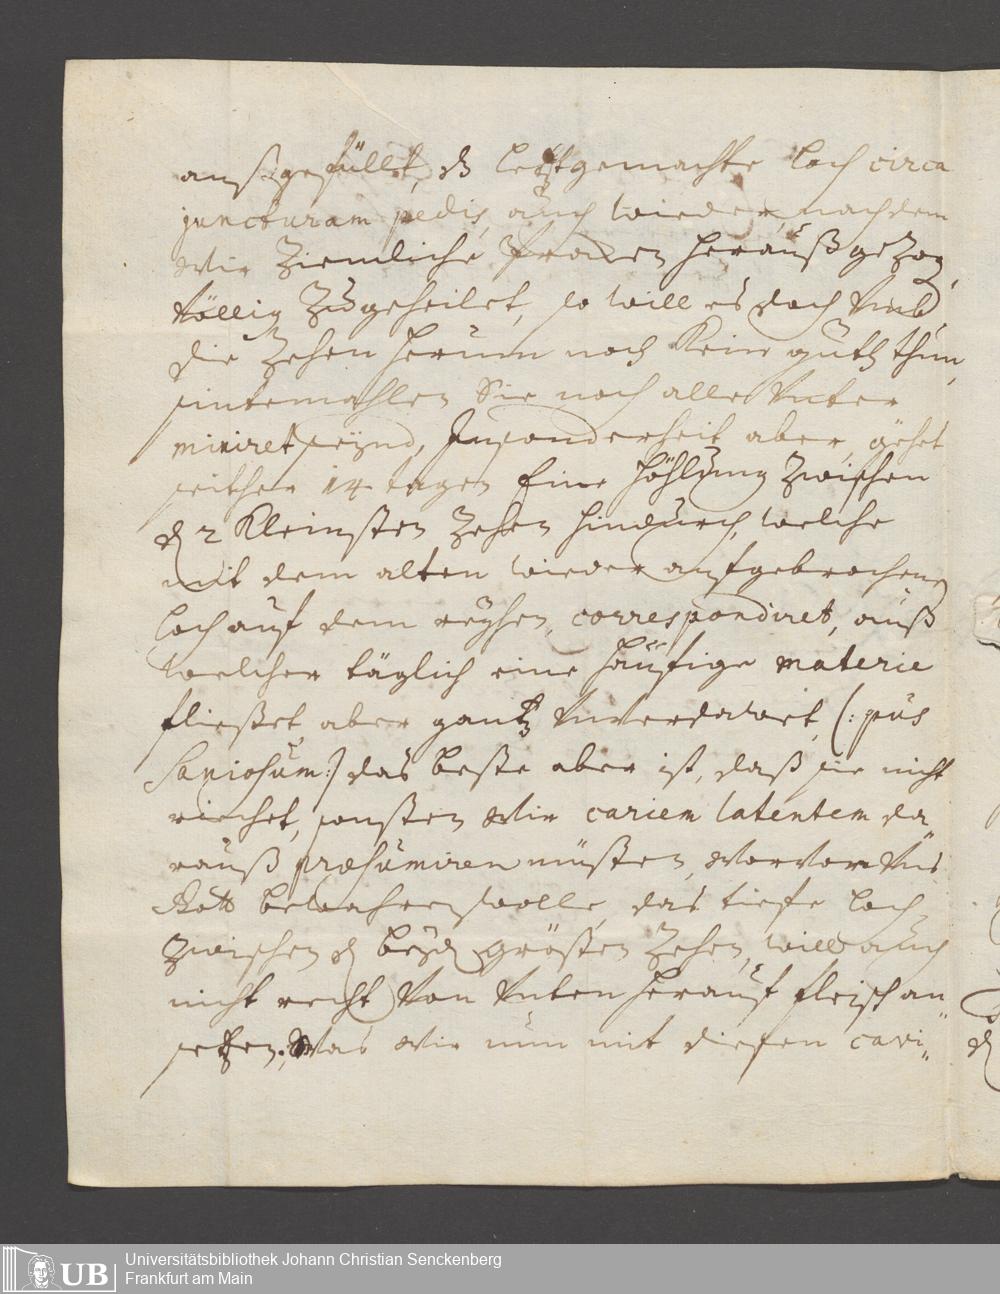 außgefüllt, dz letztgemachte loch circa
juncturam pedis, auch wieder, nachdem
Wir Ziemliche herauß gezog
Völlig Zugeheilet, so will es doch Vmb
die Zehen herum noch Kein guth thun,
sintemahlen Sie noch alle Vnter
miniret seynd, Insonderheit aber, gehet
seither 14 tagen Eine Höhlung Zwischen
d 2 Kleinsten Zehen hindurch, welche
mit dem alten wieder aufgebrochen
loch auf dem reyhen, correspondiret, auß
Welcher täglich eine häufige materie
fließet aber gantz Vnverdawet, (: pus
Saniosum:) das beste aber ist, daß sie nicht
riechet, sonsten Wir cariem latentem da
rauß præsumiren müßten, Worvor Vns
Gott bewahren wolle, das tiefe loch
Zwischen d beyd größten Zehen, will auch
nicht recht Von Vnten herauf fleisch an„
setzen. Was Wir nun mit diesen cari„
Universitätsbibliothek Johann Christian Senckenberg
Frankfurt am Main
UB